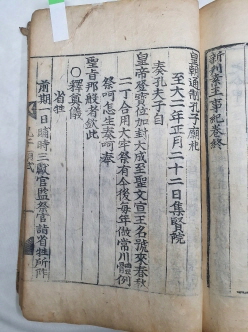 新刊素王事紀卷終
皇朝通制孔子廟祀
至大二年正月二十二日集賢院
奏孔夫子自
皇帝登寶位加封大成至聖文宣王名號來春秋
二丁合用大牢祭有今後每年做常川體例
祭呵怎生奏呵奉
聖旨那般者欽此
○釋奠儀
省牲
前期一日晡時三獻官監祭官詣省牲所作